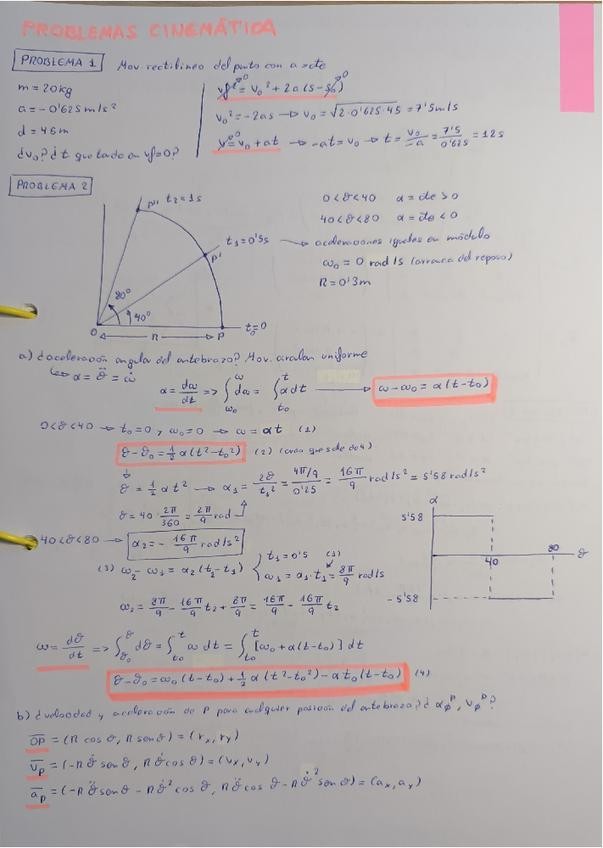 PROBLEMAS CINEMÁTICA
PROBLEMA 1 Mov rectilíneo del punto con a=cte
m = 20 kg
a = -0'625 m/s²
d = 45 m
¿v₀? ¿t que tarda en vf=0?
vf² = v₀² + 2a(s-s₀)
v₀² = -2as → v₀ = √2·0'625·45 = 7'5 m/s
v = v₀ + at → -at = v₀ → t = v₀/-a = 7'5/0'625 = 12 s
PROBLEMA 2
P'' t₂ = 1s
t₁ = 0'5s
P'
80°
40°
O
R
P
t₀=0
0 < θ < 40 α = cte > 0
40 < θ < 80 α = cte < 0
→ aceleraciones iguales en módulo
ω₀ = 0 rad/s (arranca del reposo)
R = 0'3 m
a) ¿aceleración angular del antebrazo? Mov. circular uniforme
↳ α = θ̈ = ω̇
α = dω/dt => ∫ω₀^ω dω = ∫t₀^t α dt → ω - ω₀ = α(t-t₀)
0 < θ < 40 → t₀ = 0, ω₀ = 0 → ω = αt (1)
θ - θ₀ = ½ α(t² - t₀²) (2)
θ = ½ αt² → α₁ = 2θ/t₁² = 4π/9/0'25 = 16π/9 rad/s² = 5'58 rad/s²
θ = 40 · 2π/360 = 2π/9 rad
40 < θ < 80 → α₂ = - 16π/9 rad/s²
(3) ω₂ - ω₁ = α₂(t₂-t₁) { t₁ = 0'5 (1)
ω₁ = α₁·t₁ = 8π/9 rad/s
ω₂ = 8π/9 - 16π/9 t₂ + 8π/9 = 16π/9 - 16π/9 t₂
α
5'58
40
80
θ
-5'58
ω = dθ/dt => ∫θ₀^θ dθ = ∫t₀^t ω dt = ∫t₀^t [ω₀ + α(t-t₀)] dt
θ - θ₀ = ω₀(t-t₀) + ½ α(t² - t₀²) - αt₀(t-t₀) (4)
b) ¿velocidad y aceleración de P para cualquier posición del antebrazo?
OP = (R cos θ, R sen θ) = (rx, ry)
vp = (-R θ̇ sen θ, R θ̇ cos θ) = (vx, vy)
ap = (-R θ̈ sen θ - R θ̇² cos θ, R θ̈ cos θ - R θ̇² sen θ) = (ax, ay)